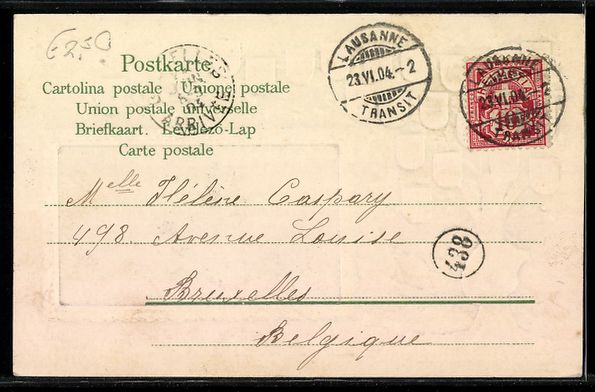 €2,50
Postkarte
Cartolina postale Unione postale
Union postale universelle
Briefkaart. Levelező-Lap
Carte postale
LAUSANNE
23.VI.04.-2
TRANSIT
LAUSANNE
23.VI.04.-2
TRANSIT
ARRIVÉE
Melle Hélène Caspary
498. Avenue Louise
438
Bruxelles
Belgique